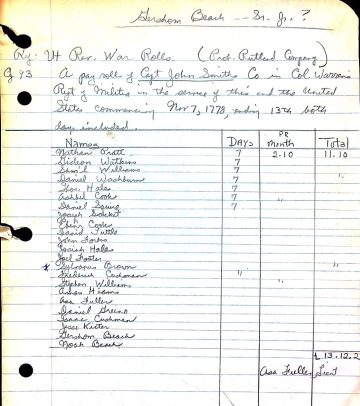 Gershom Beach -- Sr. Jr. ?
Vt Rev. War Rolls (Prob. Rutland Company)
Pg 93 A pay roll of Capt John Smiths Co in Col Warrens
Regt of Militia in the service of this and the United
States commencing Nov 7, 1778, ending 13th both
days included.
Names Days Pr month Total
Nathan Pratt 7 2-10 11.10
Gideon Watkins 7
Sam'l Williams 7 "
Daniel Washburn 7
Thos Hale 7
Ashbel Cook 7 "
Daniel Squire 7
Eben Cook
David Tuttle
John Forbs
Josiah Hale
Joel Foster
* Sylvanus Brown
Frederick Cushman " "
Stephen Williams "
Amos Hicoms
Asa Fuller
Daniel Greeno
Isaac Cushman
Gershom Beach
Noah Beach
L 13.12.2
Asa Fuller, Lieut